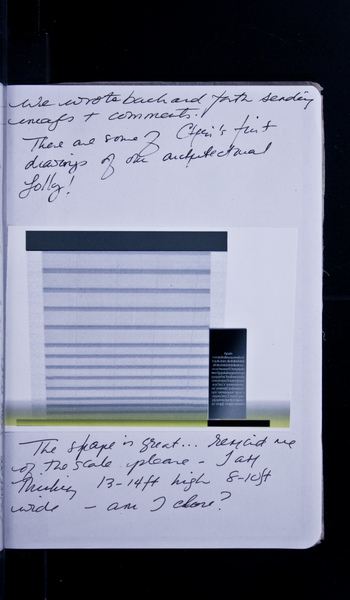 We wrote back and forth sending
images + comments.
These are some of Chris's first
drawings of our architectural
folly!
The shape is great... remind me
of the scale please - I am
thinking 13-14ft high 8-10ft
wide - am I close?